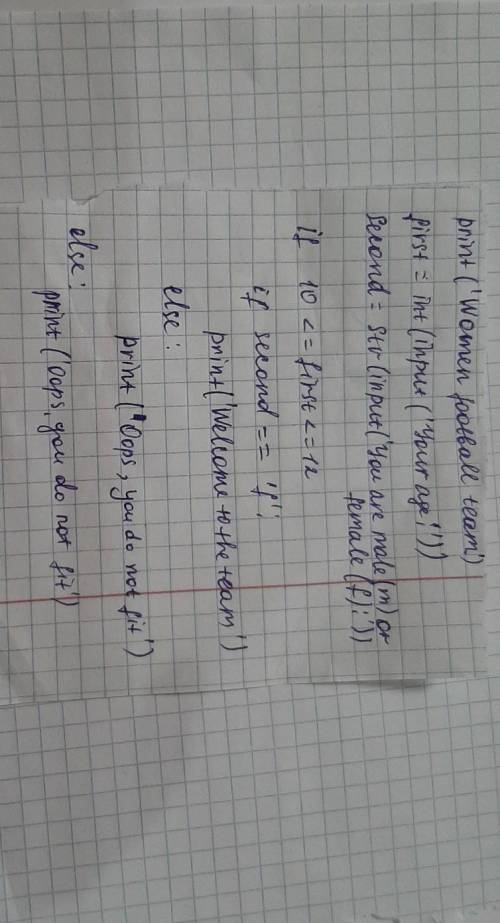 print('Women football team')
first = int(input('Your age:'))
second = str(input('You are male(m) or
female (f):'))
if 10 <= first <= 12
if second == 'f':
print('Welcome to the team')
else:
print('Oops, you do not fit')
else:
print('Oops, you do not fit')